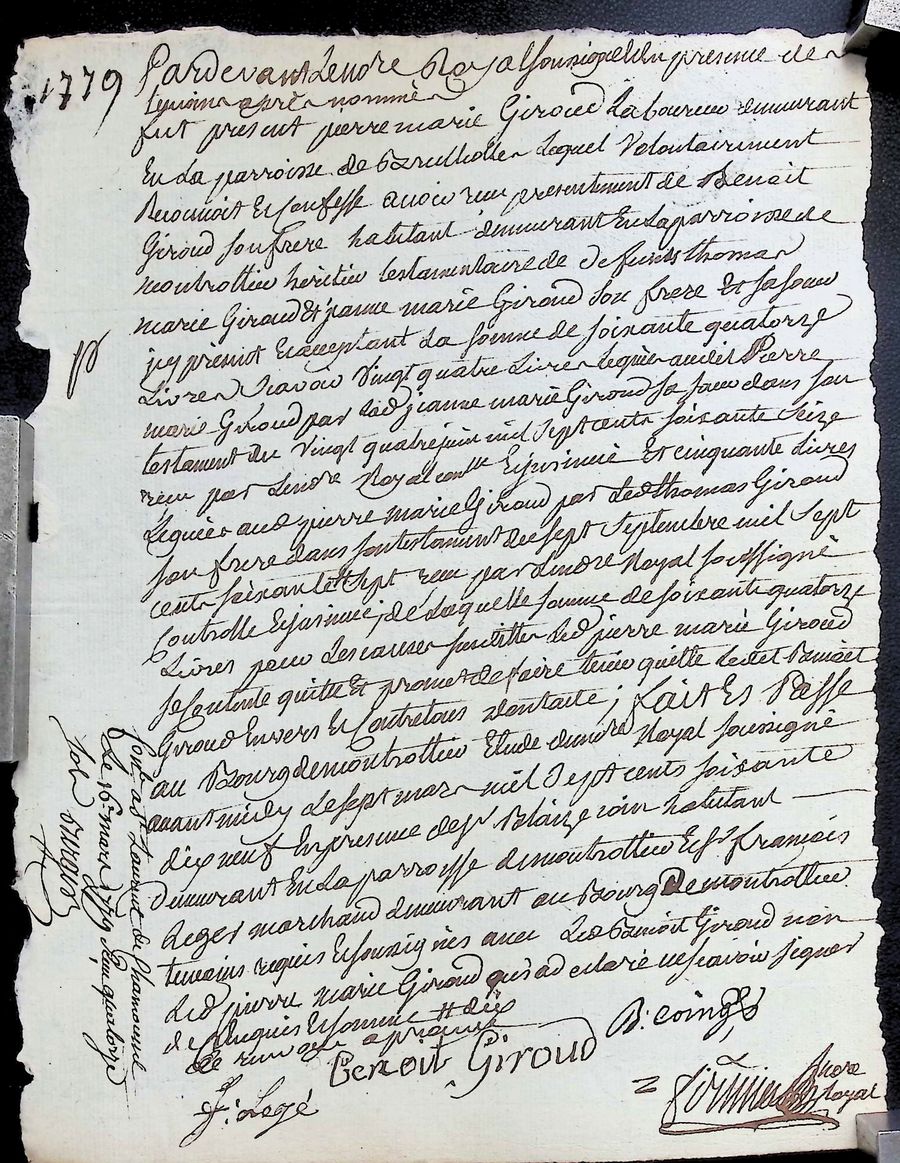 1779
Pardevant Lenore Royal soussigné et en presence de
temoins après nommés
fut present pierre marie Giroud Laboureur demeurant
En La parroisse de Brullioles Lequel Volontairement
Reconnoit Et Confesse avoir reçu presentement de Benoit
Giroud son frere habitant demeurant En La parroisse de
montrottier heritier testamentaire de defunts thomas
marie Giroud Et jeanne marie Giroud son frere Et sa soeur
icy present Et acceptant La somme de soixante quatorze
Livres sçavoir Vingt quatre Livres Leguées audit Pierre
marie Giroud par Lad jeanne marie Giroud sa soeur dans son
testament du Vingt quatre juin mil Sept cents soixante Seize
reçu par Lenore Royal contte Et jnsinué Et cinquante Livres
Leguées aud pierre marie Giroud par Led thomas Giroud
son frere dans son testament du sept Septembre mil Sept
cents soixante Sept reçu par Lenore Royal soussigné
Controllé Et jnsinué, de Laquelle somme de soixante quatorze
Livres pour Les causes susdittes Led pierre marie Giroud
se Contente quitte Et promet de faire tenir quitte Ledit Benoit
Giroud Envers Et Contre tous ; fait Et Passé
au Bourg de montrottier Etude dunore Royal soussigné
avant midy Le sept mars mil Sept cents soixante
dix neuf En presence de sr Blaize coin habitant
demeurant En La parroisse de montrottier Et sr françois
Leger marchand demeurant au Bourg De montrottier
temoins requis Et soussignés avec Led Benoit Giroud non
Led pierre marie Giroud qui a declaré ne scavoir signer
de Enquis Et somme # dix
B. coing
Benoit Giroud
f. Legé
fournier nore Royal
Cont. a St Laurent de Chamousset
Le 16 mars 1779 Reçu quatorze
sols